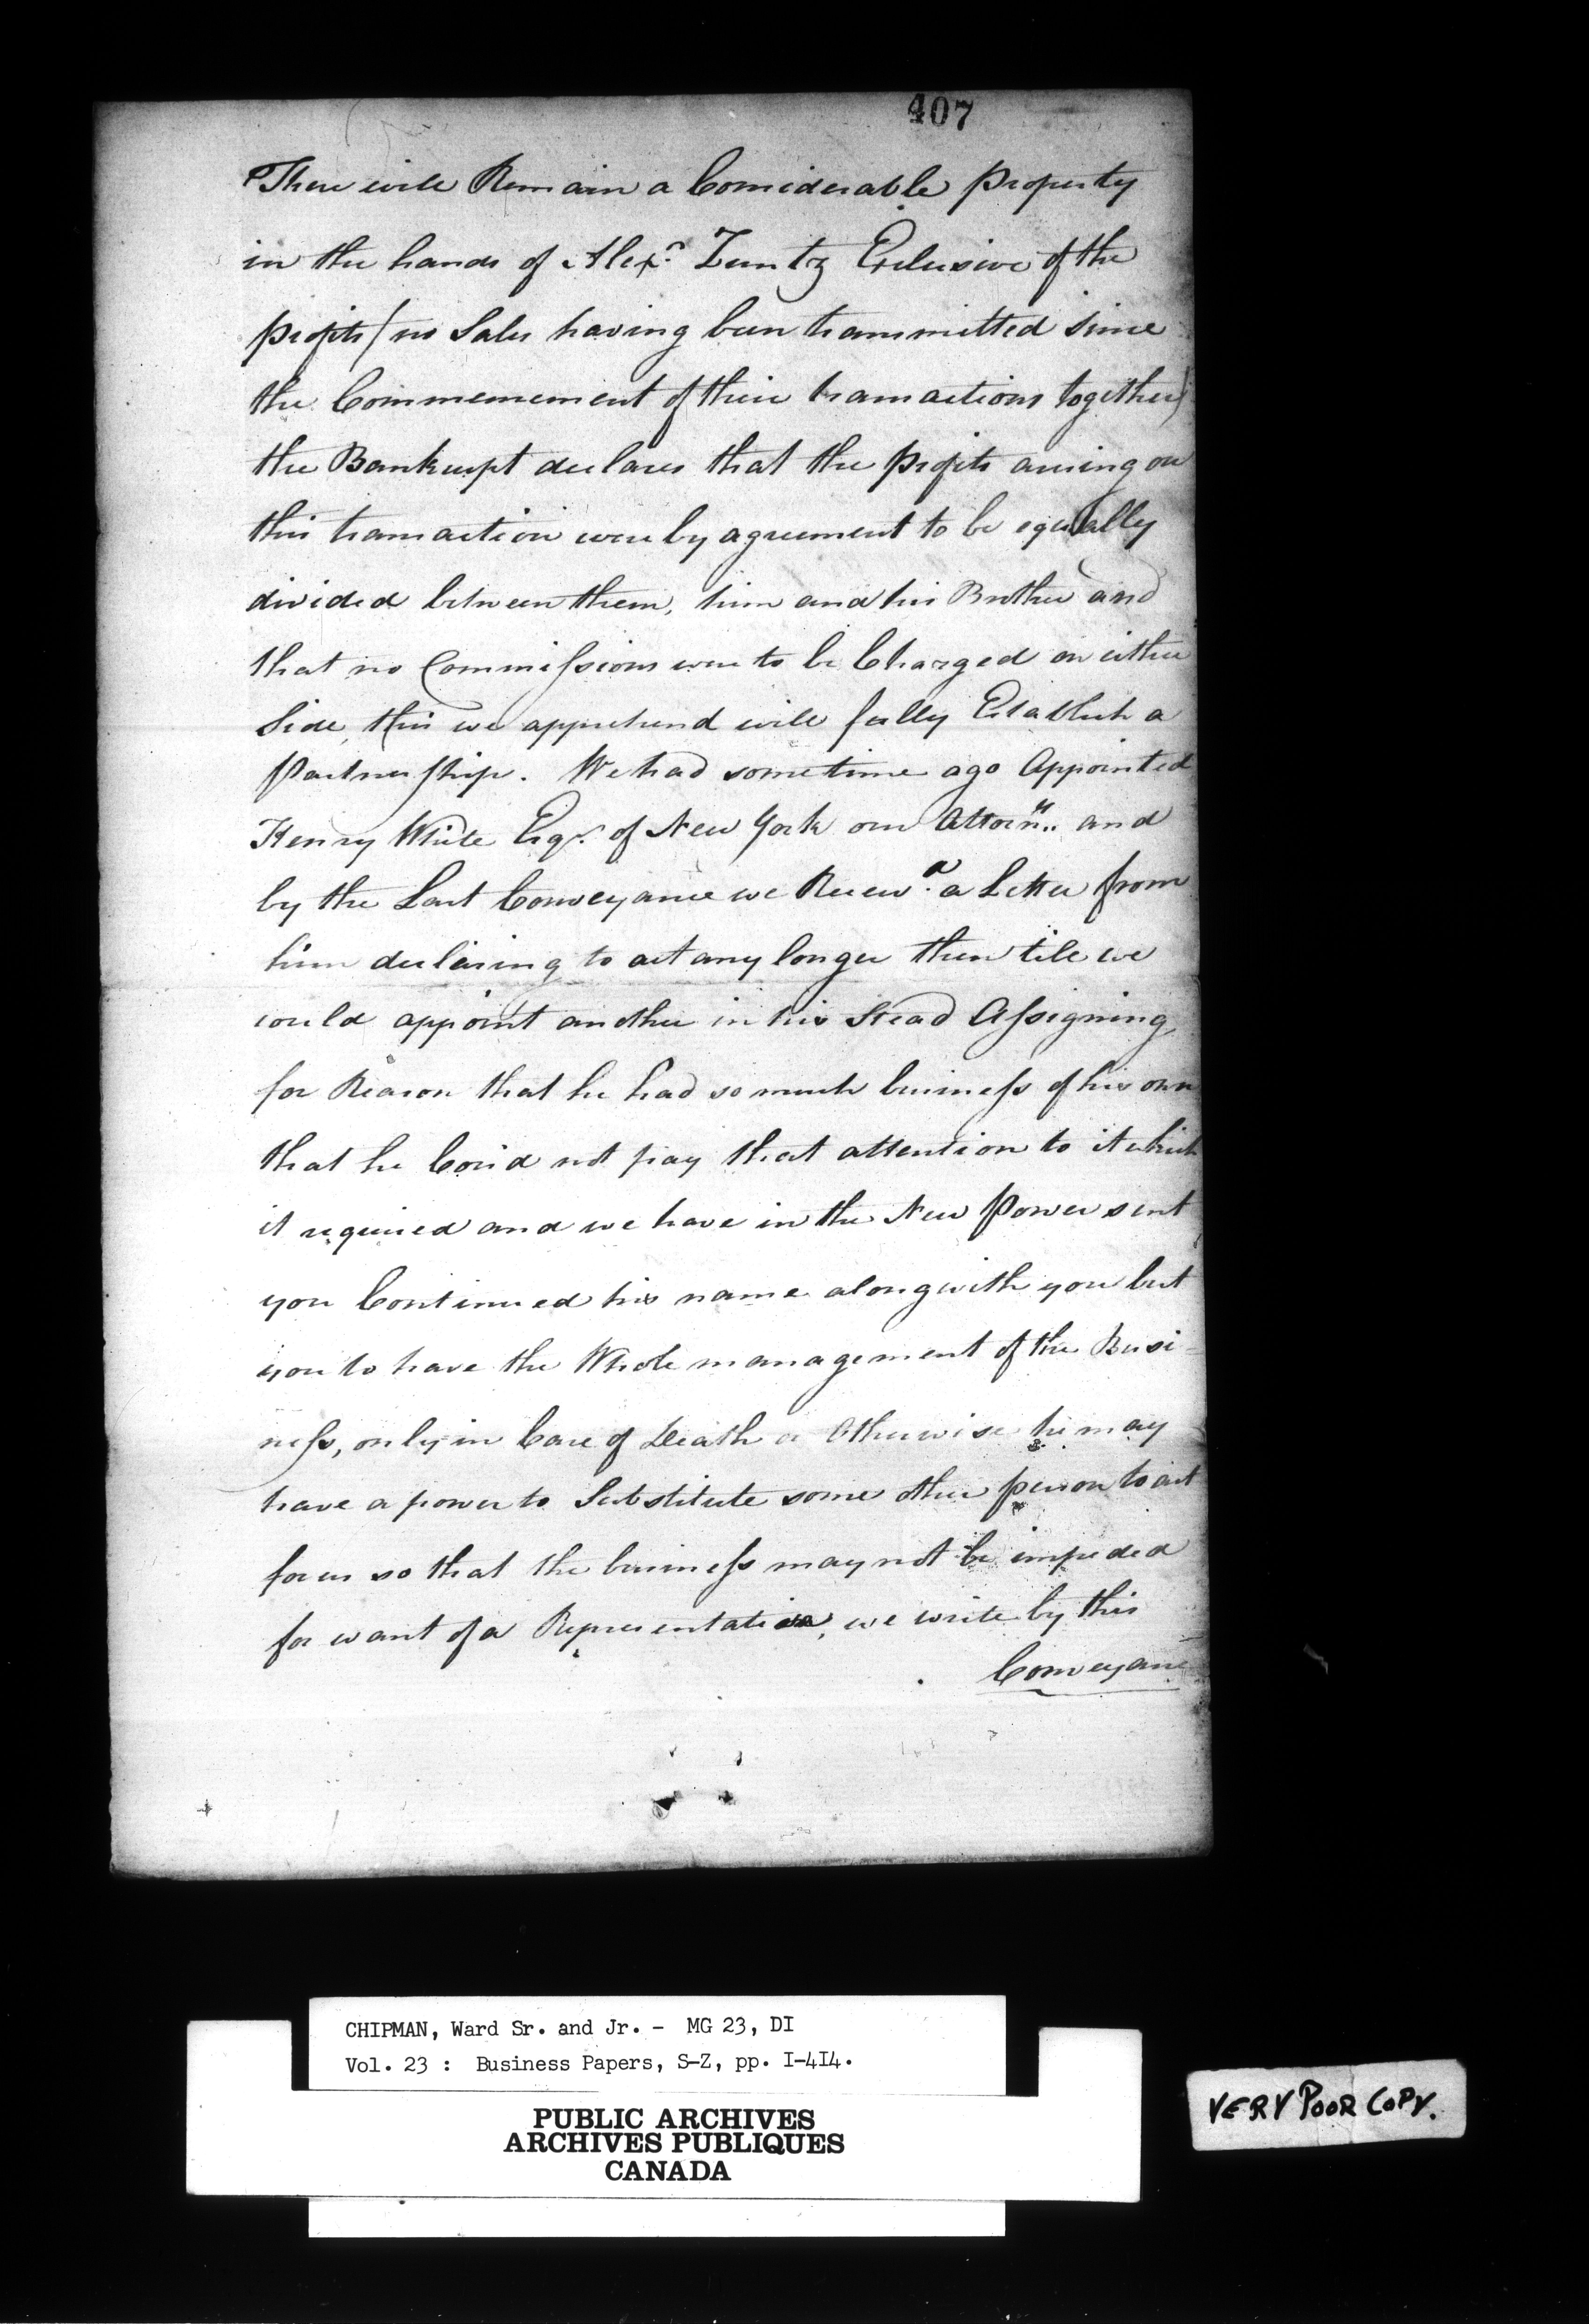 407
There will Remain a Considerable property
in the hands of Alexr. Zuntz Exclusive of the
profits (no Sales having been transmitted since
the Commencement of their transactions together)
the Bankrupt declares that the profits arising on
this transaction were by agreement to be equally
divided between them, him and his Brother and
that no Commissions were to be Charged on either
Side, this we apprehend will fully Establish a
Partnership. We had sometime ago Appointed
Henry White Esqr. of New York our Attorny. and
by the Last Conveyance we Receivd. a Letter from
him declining to act any longer then till we
could appoint another in his Stead Assigning
for Reason that he had so much business of his own
that he Cou'd not pay that attention to it which
it required and we have in the New Power sent
you Continued his name along with you but
you to have the Whole management of the Busi-
ness, only in Case of Death or Otherwise he may
have a power to Substitute some other person to act
for us so that the business may not be impeded
for want of a Representative, we write by this
Conveyance
CHIPMAN, Ward Sr. and Jr. - MG 23, DI
Vol. 23 : Business Papers, S-Z, pp. I-4I4.
PUBLIC ARCHIVES
ARCHIVES PUBLIQUES
CANADA
VERY POOR COPY.